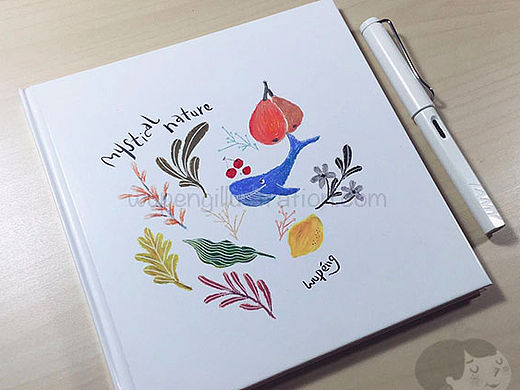 mystical nature
wupengillustration.com
wupéng